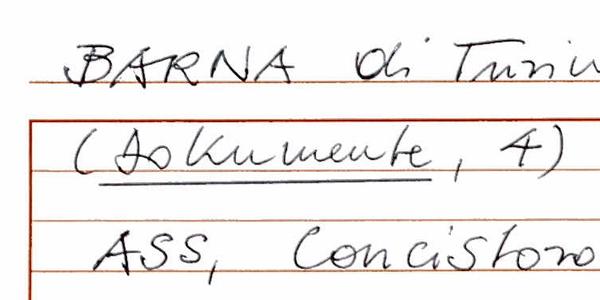 BARNA di Turin
(Dokumente, 4)
ASS, Concistoro